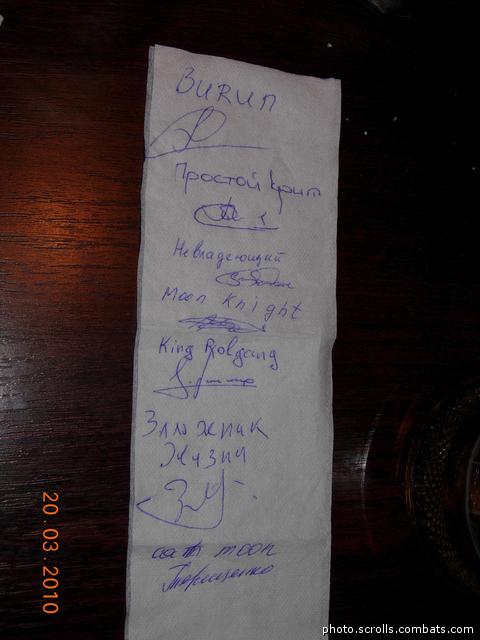 BURUN
Простой Крит
Невладеющий
Moon Knight
King
Зложник
Жизни
moon
Терещенко
20.03.2010
photo.scrolls.combats.com